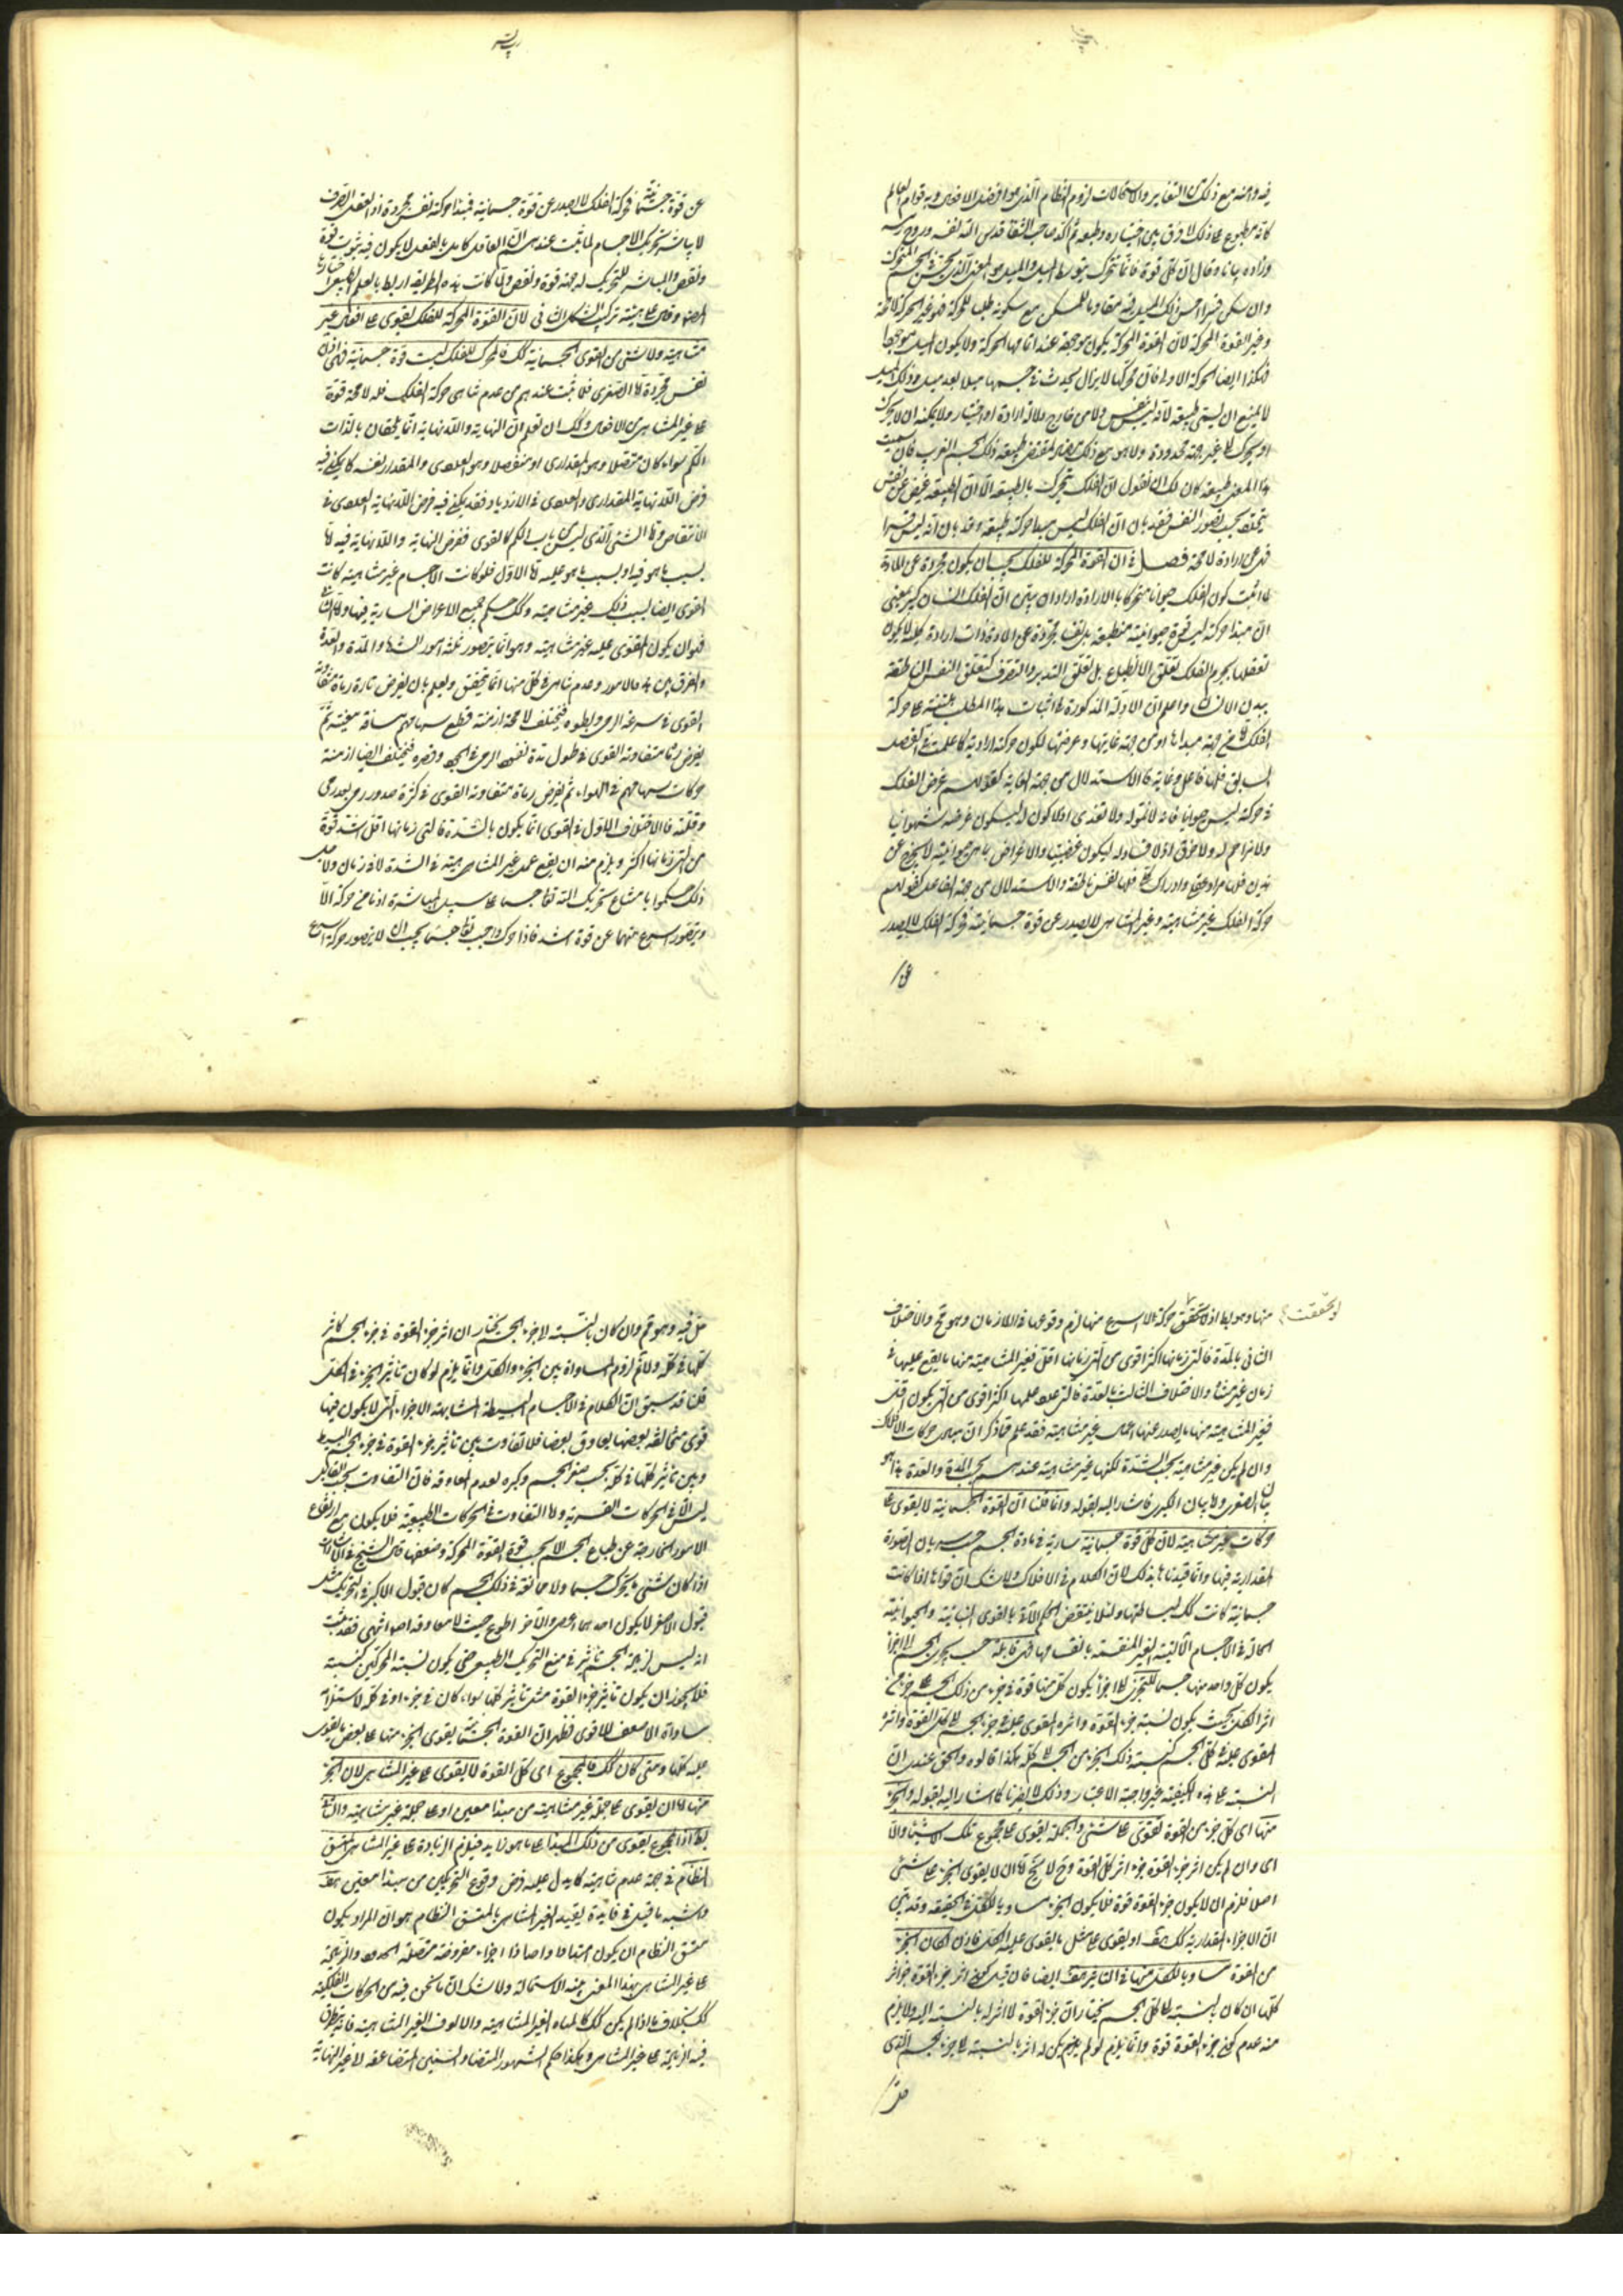 فيه وانه مع ذلك من التغاير والاستحالات لزوم النظام الذي هو افضل الافعال وبه قوام العالم
كانه مطبوع على ذلك لا فرق بين اختياره وطبعه ثم اكده صاحب الشفا قدس الله نفسه وروح رمسه
وزاده بيانا وقال ان كل قوة فانما تحرك بتوسط الميل والميل هو المعنى الذي يحس في الجسم المتحرك
وان سكن قسرا احس ذلك الميل فيه يقاوم المسكن مع سكونه طلبا للحركة فهو غير الحركة لا محالة
وغير القوة المحركة لان القوة المحركة يكون موجودة عند اتمامها الحركة ولا يكون الميل موجودا
فهكذا ايضا الحركة الاولى فان محركها لا يزال يحدث في جسمها ميلا بعد ميل وذلك الميل
لا يمتنع ان يسمى طبيعة لانه ليس بنفس ولا من خارج ولا له ارادة او اختيار ولا يمكنه ان لا يحرك
او يحرك الى غير جهة محدودة ولا هو مع ذلك بمضاد لمقتضى طبيعة ذلك الجسم القريب فان سميت
هذا المعنى طبيعة كان لك ان تقول ان الفلك يتحرك بالطبيعة الا ان الطبيعة فيض عن نفس
يتجدد بحسب تصور النفس فقد بان ان الفلك ليس مبدأ حركته طبيعة وقد بان انه ليس قسرا
فهي عن ارادة لا محالة فصل في ان القوة المحركة للفلك يجب ان يكون مجردة عن المادة
لما اثبت كون الفلك حيوانا متحركا بالارادة اراد ان يبين ان الفلك انسان كبير بمعنى
ان مبدأ حركته ليس قوة حيوانية منطبعة بل نفسا مجردة عن المادة ذات ارادة كلية لا يكون
تعقلها بجرم الفلك تعلق الانطباع بل تعلق التدبير والتصرف كتعلق النفس الناطقة
ببدن الانسان واعلم ان الادلة المذكورة في اثبات هذا المطلب مبتنية على حركة
الفلك اما من جهة مبدأها او من جهة غايتها وغرضها لكون حركته ارادية كما علمت في الفصل
السابق فلها فاعل وغاية فالاستدلال من جهة الغاية كقولهم غرض الفلك
في حركته ليس حيوانيا فانه لا نمو له ولا تغذى اذ لا كون له ليكون غرضه شهوانيا
ولا مزاحم له ولا خرق اذ لا فساد له ليكون غضبيا والاغراض باسرها حيوانية لا يخرج عن
هذين فلها مراد عقلي وادراك كلي فلها نفس ناطقة والاستدلال من جهة الفاعل كقولهم
حركة الفلك غير متناهية وغير المتناهي لا يصدر عن قوة جسمانية فحركة الفلك لا يصدر
عن
عن قوة جسمانية فحركة الفلك لا يصدر عن قوة جسمانية فمبدأ حركته نفس مجردة اذ العقل الصرف
لا يباشر تحريك الاجسام لما ثبت عندهم ان العاقل كامل بالفعل لا يكون فيه شوب قوة
ونقص والمباشر للتحريك له جهة قوة ونقص ولما كانت هذه الطريقة اربط بالعلم الطبيعي اختارها
المص وقال على هيئة تركيب الشكل الثاني لان القوة المحركة للفلك تقوى على افعال غير
متناهية ولا شيء من القوى الجسمانية كذلك فالمحرك للفلك ليست قوة جسمانية فهي اذن
نفس مجردة اما الصغرى فلما ثبت عندهم من عدم تناهى حركة الفلك فله لا محالة قوة
على غير المتناهي من الافعال ولك ان تعلم ان النهاية واللانهاية انما يلحقان بالذات
الكم سواء كان متصلا وهو المقداري او منفصلا وهو العددي والمقدار نفسه كما يمكن فيه
فرض اللانهاية المقداري والعددي في الازدياد فقد يمكن فيه فرض اللانهاية العددي في
الانتقاص واما الشيء الذي ليس من باب الكم كالقوى ففرض النهاية واللانهاية فيه اما
بسبب ما هو فيه او بسبب ما هو عليه اما الاول فلو كانت الاجسام غير متناهية كانت
القوى ايضا بسبب ذلك غير متناهية وكذلك حكم جميع الاعراض السارية فيها واما الثاني
فهو ان يكون المقوى عليه غير متناهية وهو انما يتصور بثلثة امور الشدة والمدة والعدة
والفرق بين هذه الامور وعدم تناهى كل منها انما يتحقق ويعلم بان يفرض تارة رماة متفاوتة
القوى في سرعة الرمي وبطوه فيختلف لا محالة ازمنة قطع سهامهم مسافة معينة ثم
يفرض رماة متفاوتة القوى في طول مدة نفوذ الرمي في الجو وقصره فيختلف ايضا ازمنة
حركات سهامهم في الهواء ثم يفرض رماة متفاوتة القوى في كثرة صدور رمي بعد رمي
وقلته فالاختلاف الاول في القوى انما يكون بالشدة فالتي زمانها اقل اشد قوة
من التي زمانها اكثر ويلزم منه ان يقع عمل غير المتناهية في الشدة لا في زمان ولاجل
ذلك حكموا بامتناع تحريك الله تعالى جسما على سبيل المباشرة اذ ما من حركة الا
ويتصور اسرع منها عن قوة اشد فاذا حرك الواجب تعالى جسما يجب ان لا يتصور حركة اسرع
لو تحققت
منها وهو بط اذ لا تحقق حركة الاسرع منها لزم وقوعها في اللازمان وهو مح والاختلاف
الثاني بالمدة فالتي زمانها اكثر اقوى من التي زمانها اقل فغير المتناهية منها ما يقع عملها في
زمان غير متناه والاختلاف الثالث بالعدة فالتي عدد عملها اكثر اقوى من التي يكون اقل
فغير المتناهية منها ما يصدر عنها اعمال غير متناهية فقد علم مما ذكر ان مبادى حركات الافلاك
وان لم يكن غير متناهية بحسب الشدة لكنها غير متناهية عندهم بحسب المدة والعدة هذا هو
بيان الصغرى واما بيان الكبرى فاشار اليه بقوله وانما قلنا ان القوة الجسمانية لا يقوى على
حركات غير متناهية لان كل قوة جسمانية سارية في مادة الجسم حسب سريان الصورة
المقدارية فيها وانما قيدناها بذلك لان الكلام في الافلاك ولا شك ان قواها اذا كانت
جسمانية كانت كذلك لبساطتها ولئلا ينتقض الحكم الآتي بالقوى النباتية والحيوانية
الحالة في الاجسام الآلية الغير المنقسمة بانقسامها فهي قابلة حسب تجزى الجسم الى اجزاء
يكون كل واحد منها جسما للتجزى الى اجزاء يكون كل منها قوة في جزء من ذلك الجسم على جزء من
اثر الكل بحيث يكون نسبة جزء القوة واثره المقوى عليه في جزء الجسم الى كل القوة واثره
المقوى عليه في كل الجسم كنسبة ذلك الجزء من الجسم الى كله هكذا قالوه والحق عندى ان
النسبة على هذه الكيفية غير واجبة الاعتبار وذلك لا يضرنا كما اشار اليه بقوله والجزء
منها اى كل جزء من القوة تقوى على شيء والجملة يقوى على مجموع تلك الاشياء والا
اى وان لم يكن اثر جزء القوة جزء اثر كل القوة وح لا يخ اما ان لا يقوى الجزء على شيء
اصلا فلزم ان لا يكون جزء القوة قوة فلا يكون الجزء مساويا للكل في الحقيقة وقد تبين
ان الاجزاء المقدارية كذلك هف او يقوى على مثل ما يقوى عليه الكل فاذن لكان الجزء
من القوة مساويا للكل منها في التاثير هف ايضا فان قيل كون اثر جزء القوة جزء اثر
كلها ان كان بالنسبة الى كل الجسم نختار ان جزء القوة لا اثر له بالنسبة اليه ولا يلزم
منه عدم كون جزء القوة قوة وانما يلزم لو لم يكن له اثر بالنسبة الى جزء الجسم الذي
حل
حل فيه وهو مم وان كان بالنسبة لاجزاء الجسم نختار ان اثر جزء القوة في جزء الجسم كاثر
كلها في كله ولا نم لزوم المساواة بين الجزء والكل وانما يلزم لو كان تأثير الجزء في الكل
قلنا قد سبق ان الكلام في الاجسام البسيطة المتشابهة الاجزاء التي لا يكون فيها
قوى متخالفة بعضها يعاوق بعضا فلا تفاوت بين تأثير جزء القوة في جزء الجسم البسيط
وبين تأثير كلها في كله بحسب صغر الجسم وكبره لعدم المعاوقة فان التفاوت بحسب القابل
ليس الا في الحركات القسرية واما التفاوت في الحركات الطبيعية فلا يكون مع ارتفاع
الامور الخارجة عن طباع الجسم الا بحسب قوة القوة المحركة وضعفها قال الشيخ في الاشارات
اذا كان شيء يحرك جسما ولا ممانعة في ذلك الجسم كان قبول الاكبر في التحريك مثل
قبول الاصغر لا يكون احدهما اعصى والآخر اطوع حيث لا معاوقة اصلا انتهى فقد ثبت
انه ليس لزيادة الجسم تأثير في منع التحريك الطبيعي حتى يكون نسبة المحركين كنسبة
فلا يجوز ان يكون تأثير جزء القوة مثل تأثير كلها سواء كان في جزء او في كله لاستلزامه
مساواة الاضعف للاقوى فظهر ان القوة الجسمانية يقوى الجزء منها على بعض ما يقوى
عليه كلها ومتى كان كذلك فالمجموع اى كل القوة لا يقوى على غير المتناهي لان الجزء
منها اما ان يقوى على جملة غير متناهية من مبدأ معين او على جملة غير متناهية والثانى
بط اذ المجموع يقوى من ذلك المبدأ على ما هو ازيد فيلزم الزيادة على غير المتناهي المتسق
النظام في جهة عدم تناهيه كما يدل عليه فرض وقوع التحريكين من مبدأ معين هف
واشبه ما قيل في فائدة تقييد الغير المتناهي بالمتسق النظام هو ان المراد بكون
متسق النظام ان يكون امتدادا واحدا ذا اجزاء مفروضة متصلة الحدود والزيادة
على غير المتناهي بهذا المعنى بين الاستحالة ولا شك ان ما نحن فيه من الحركات الفلكية
كذلك بخلاف ما اذا لم يكن كذلك كالمئات الغير المتناهية والالوف الغير المتناهية فانه يتطرق
فيه الزيادة على غير المتناهي وهكذا حكم الشهور المتضاعفة والسنين المتضاعفة الى غير النهاية